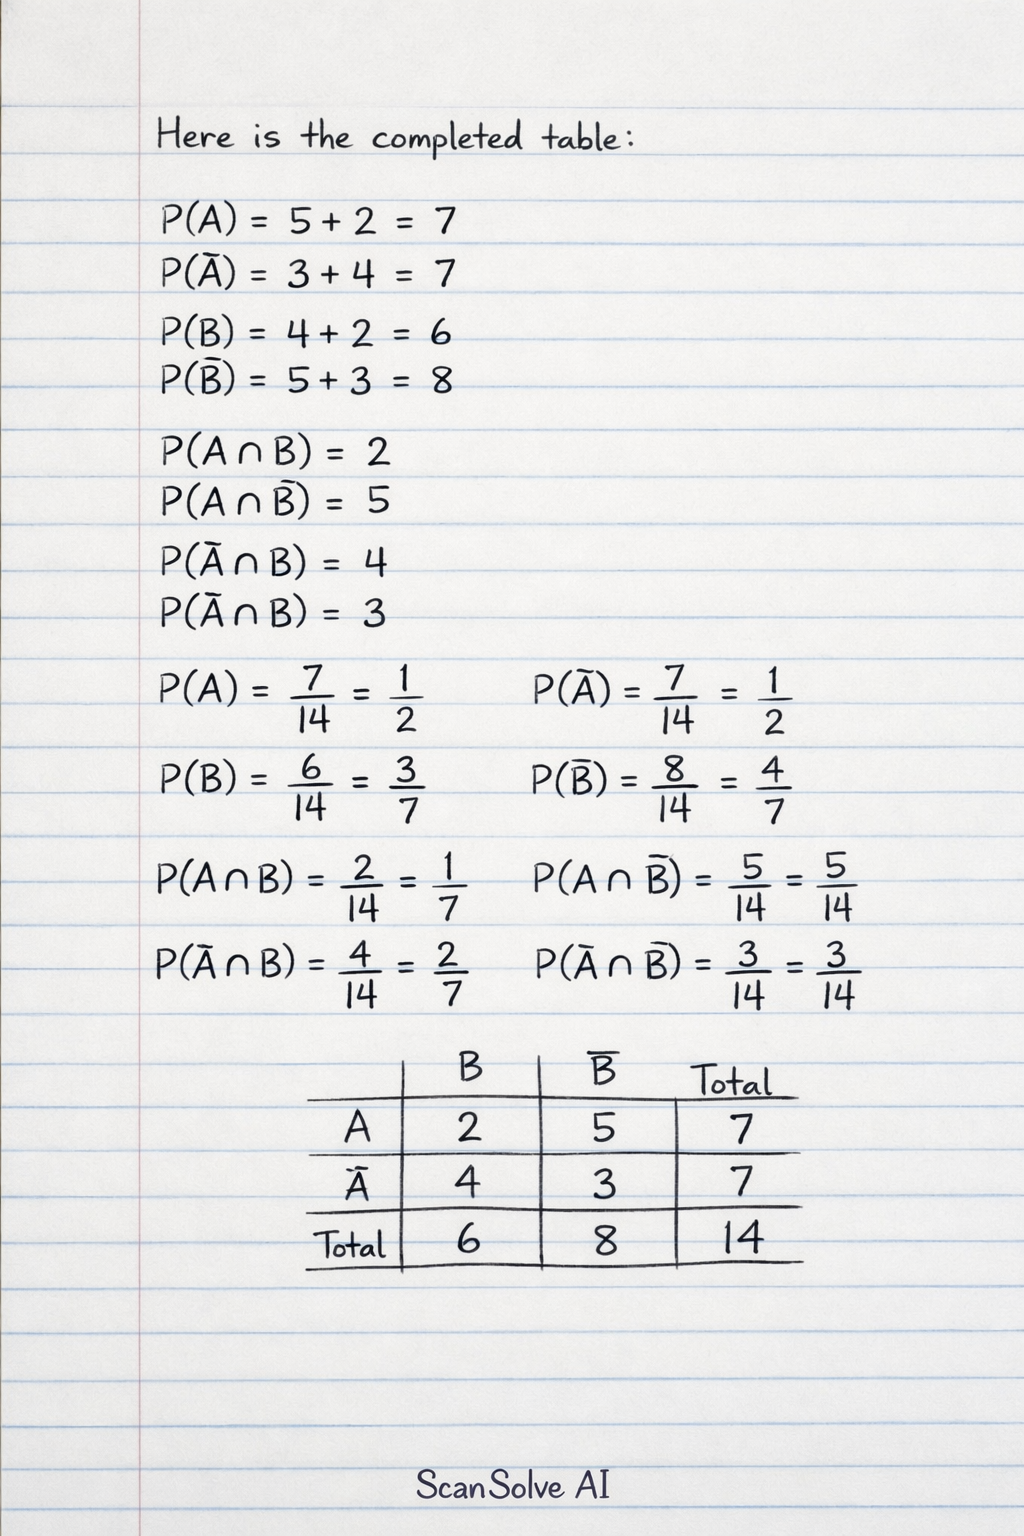 Here is the completed table:
P(A) = 5 + 2 = 7
P(Ā) = 3 + 4 = 7
P(B) = 4 + 2 = 6
P(B̄) = 5 + 3 = 8
P(A ∩ B) = 2
P(A ∩ B̄) = 5
P(Ā ∩ B) = 4
P(Ā ∩ B) = 3
P(A) = 7/14 = 1/2 P(Ā) = 7/14 = 1/2
P(B) = 6/14 = 3/7 P(B̄) = 8/14 = 4/7
P(A ∩ B) = 2/14 = 1/7 P(A ∩ B̄) = 5/14 = 5/14
P(Ā ∩ B) = 4/14 = 2/7 P(Ā ∩ B̄) = 3/14 = 3/14
B B̄ Total
A 2 5 7
Ā 4 3 7
Total 6 8 14
ScanSolve AI